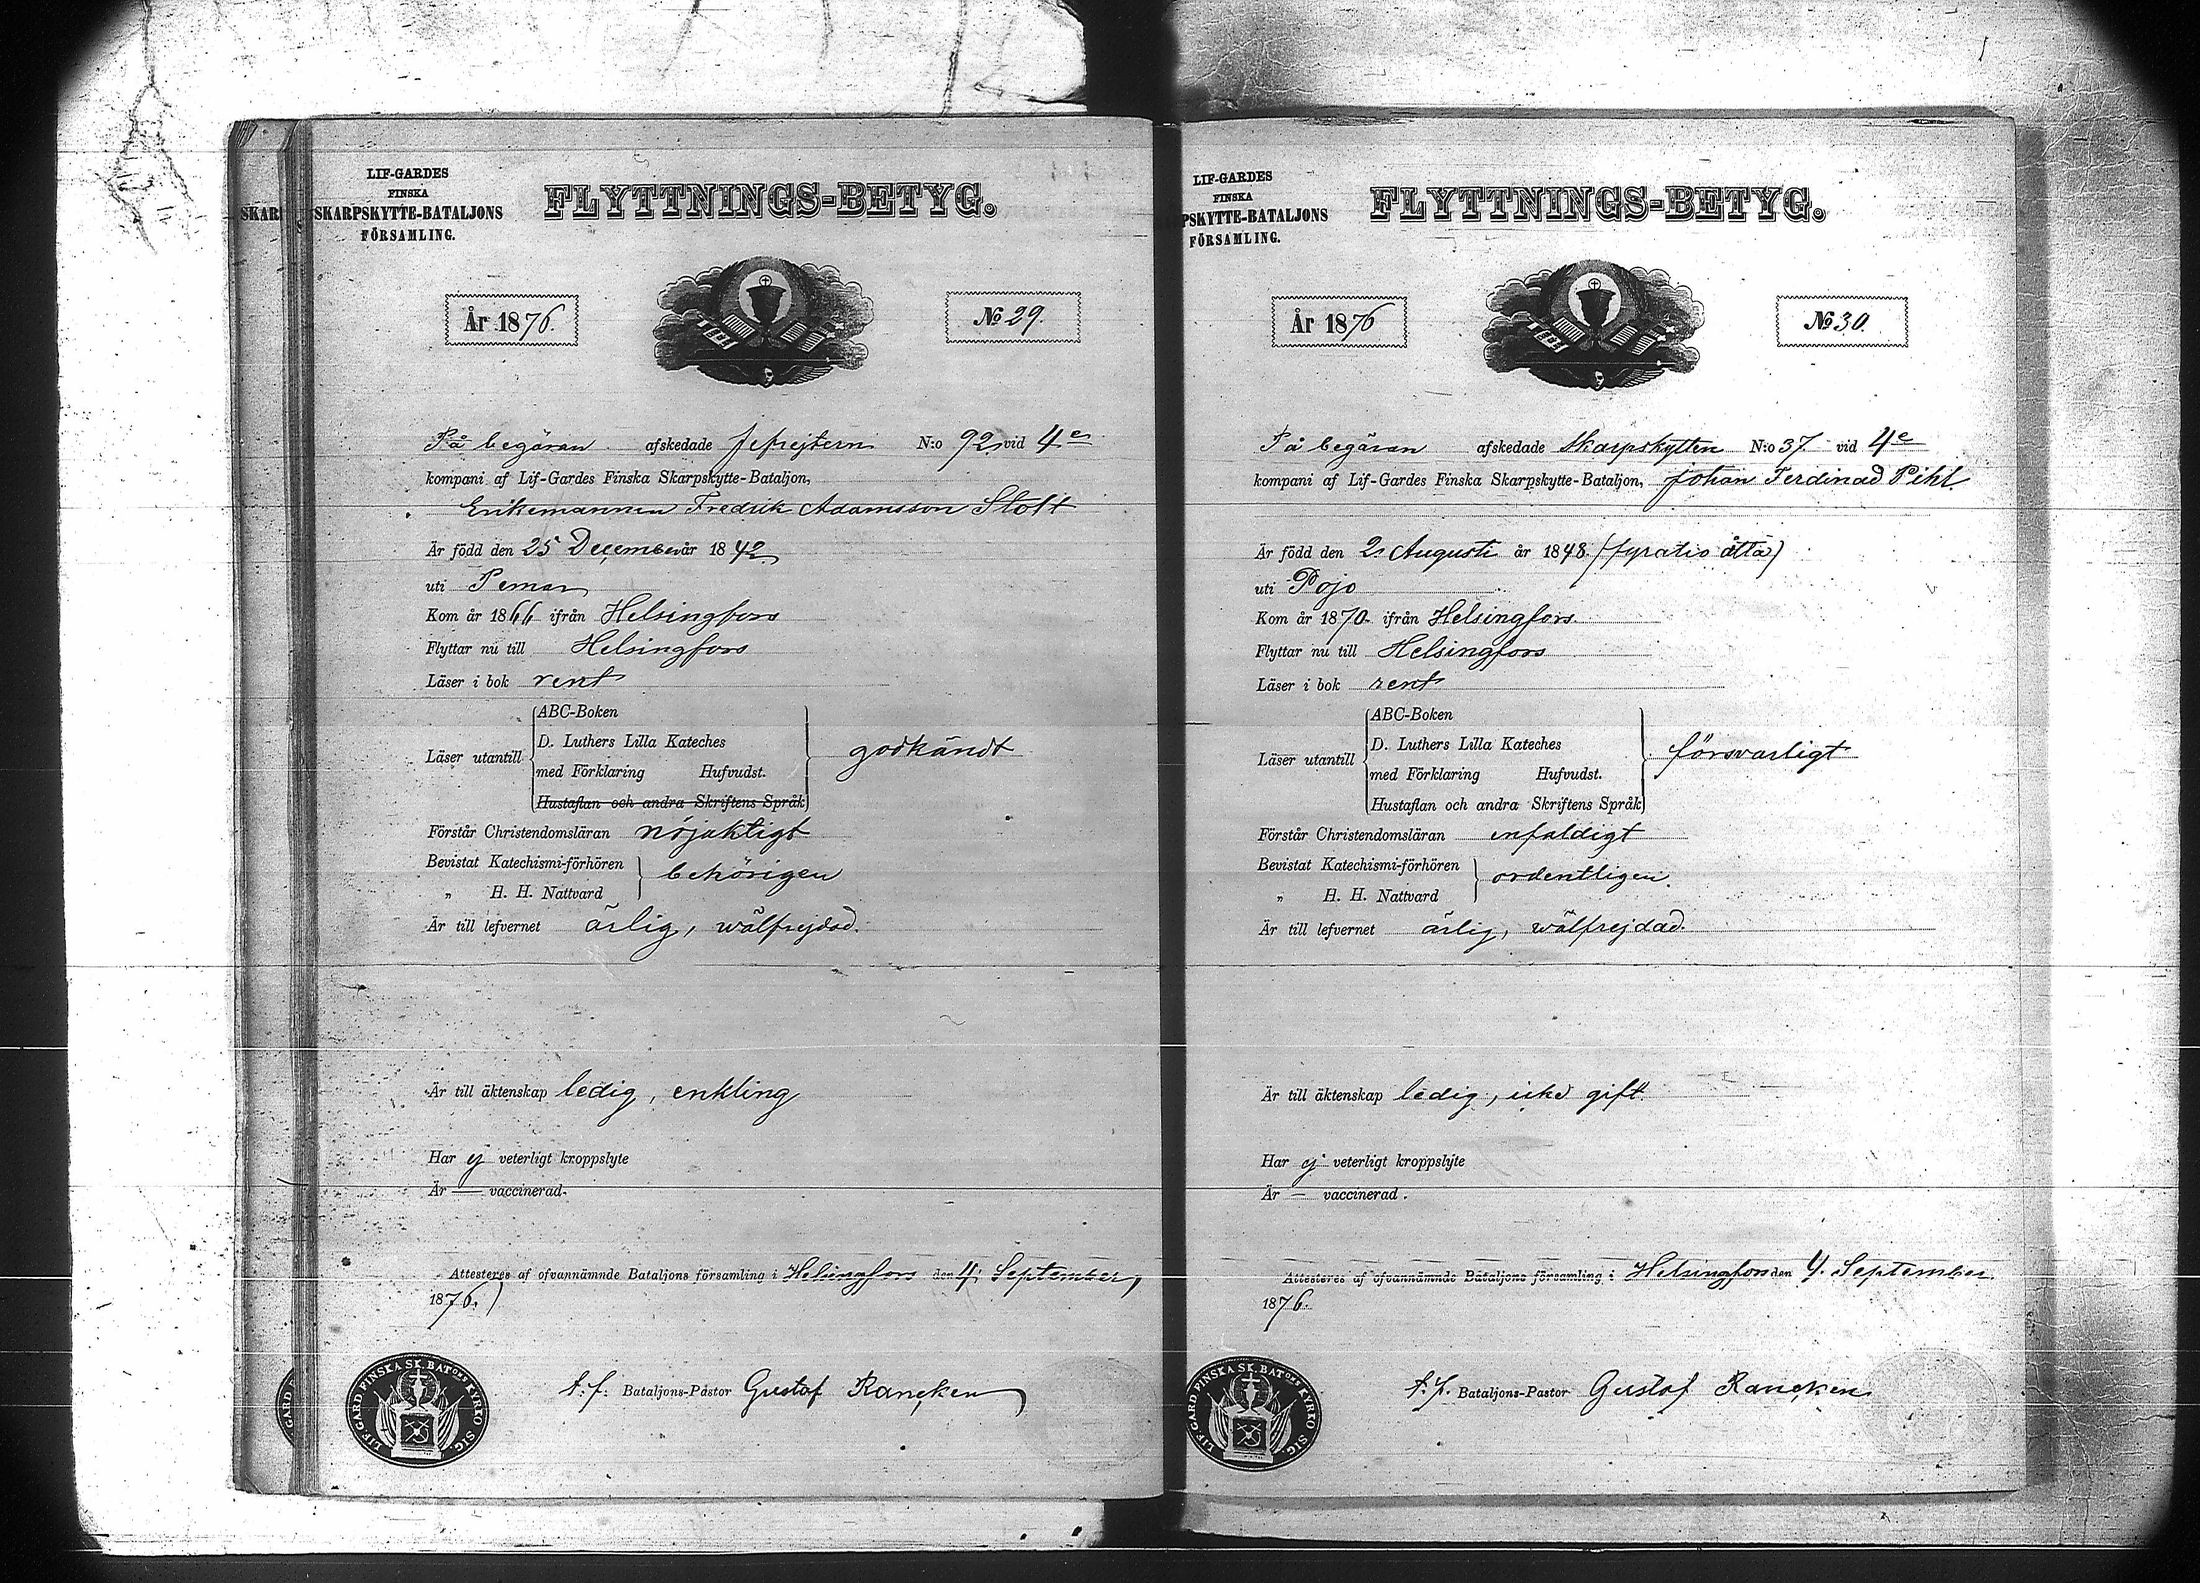 LIF-GARDES
FINSKA
SKARPSKYTTE-BATALJONS
FÖRSAMLING.
FLYTTNINGS-BETYG.
År 1876.
No 29.
På begäran afskedade gefrejtern N:o 92 vid 4e
kompani af Lif-Gardes Finska Skarpskytte-Bataljon,
Enkemannen Fredrik Adamsson Stolt
Är född den 25 December år 1842
uti Pemar
Kom år 1866 ifrån Helsingfors
Flyttar nu till Helsingfors
Läser i bok rent
Läser utantill
ABC-Boken
D. Luthers Lilla Kateches
med Förklaring Hufvudst.
Hustaflan och andra Skriftens Språk
godkändt
Förstår Christendomsläran nöjaktigt
Bevistat Katechismi-förhören
„ H. H. Nattvard
behörigen
Är till lefvernet ärlig, wälfrejdad.
Är till äktenskap ledig, enkling
Har ej veterligt kroppslyte
Är — vaccinerad.
Attesteres af ofvannämnde Bataljons församling i Helsingfors den 4 September,
1876.
t.f. Bataljons-Pastor Gustaf Rancken
LIF GARD FINSKA SK. BATONS KYRKO SIG.
LIF-GARDES
FINSKA
PSKYTTE-BATALJONS
FÖRSAMLING.
FLYTTNINGS-BETYG.
År 1876
No 30.
På begäran afskedade Skarpskytten N:o 37 vid 4e
kompani af Lif-Gardes Finska Skarpskytte-Bataljon, Johan Ferdinad Pihl.
Är född den 2 Augusti år 1848 (fyratio åtta)
uti Pojo
Kom år 1870 ifrån Helsingfors
Flyttar nu till Helsingfors
Läser i bok rent
Läser utantill
ABC-Boken
D. Luthers Lilla Kateches
med Förklaring Hufvudst.
Hustaflan och andra Skriftens Språk
försvarligt
Förstår Christendomsläran enfaldigt
Bevistat Katechismi-förhören
„ H. H. Nattvard
ordentligen.
Är till lefvernet ärlig, wälfrejdad.
Är till äktenskap ledig, icke gift.
Har ej veterligt kroppslyte
Är — vaccinerad.
Attesteres af ofvannämnde Bataljons församling i Helsingfors den 4. September.
1876.
t.f. Bataljons-Pastor Gustaf Rancken
LIF GARD FINSKA SK. BATONS KYRKO SIG.